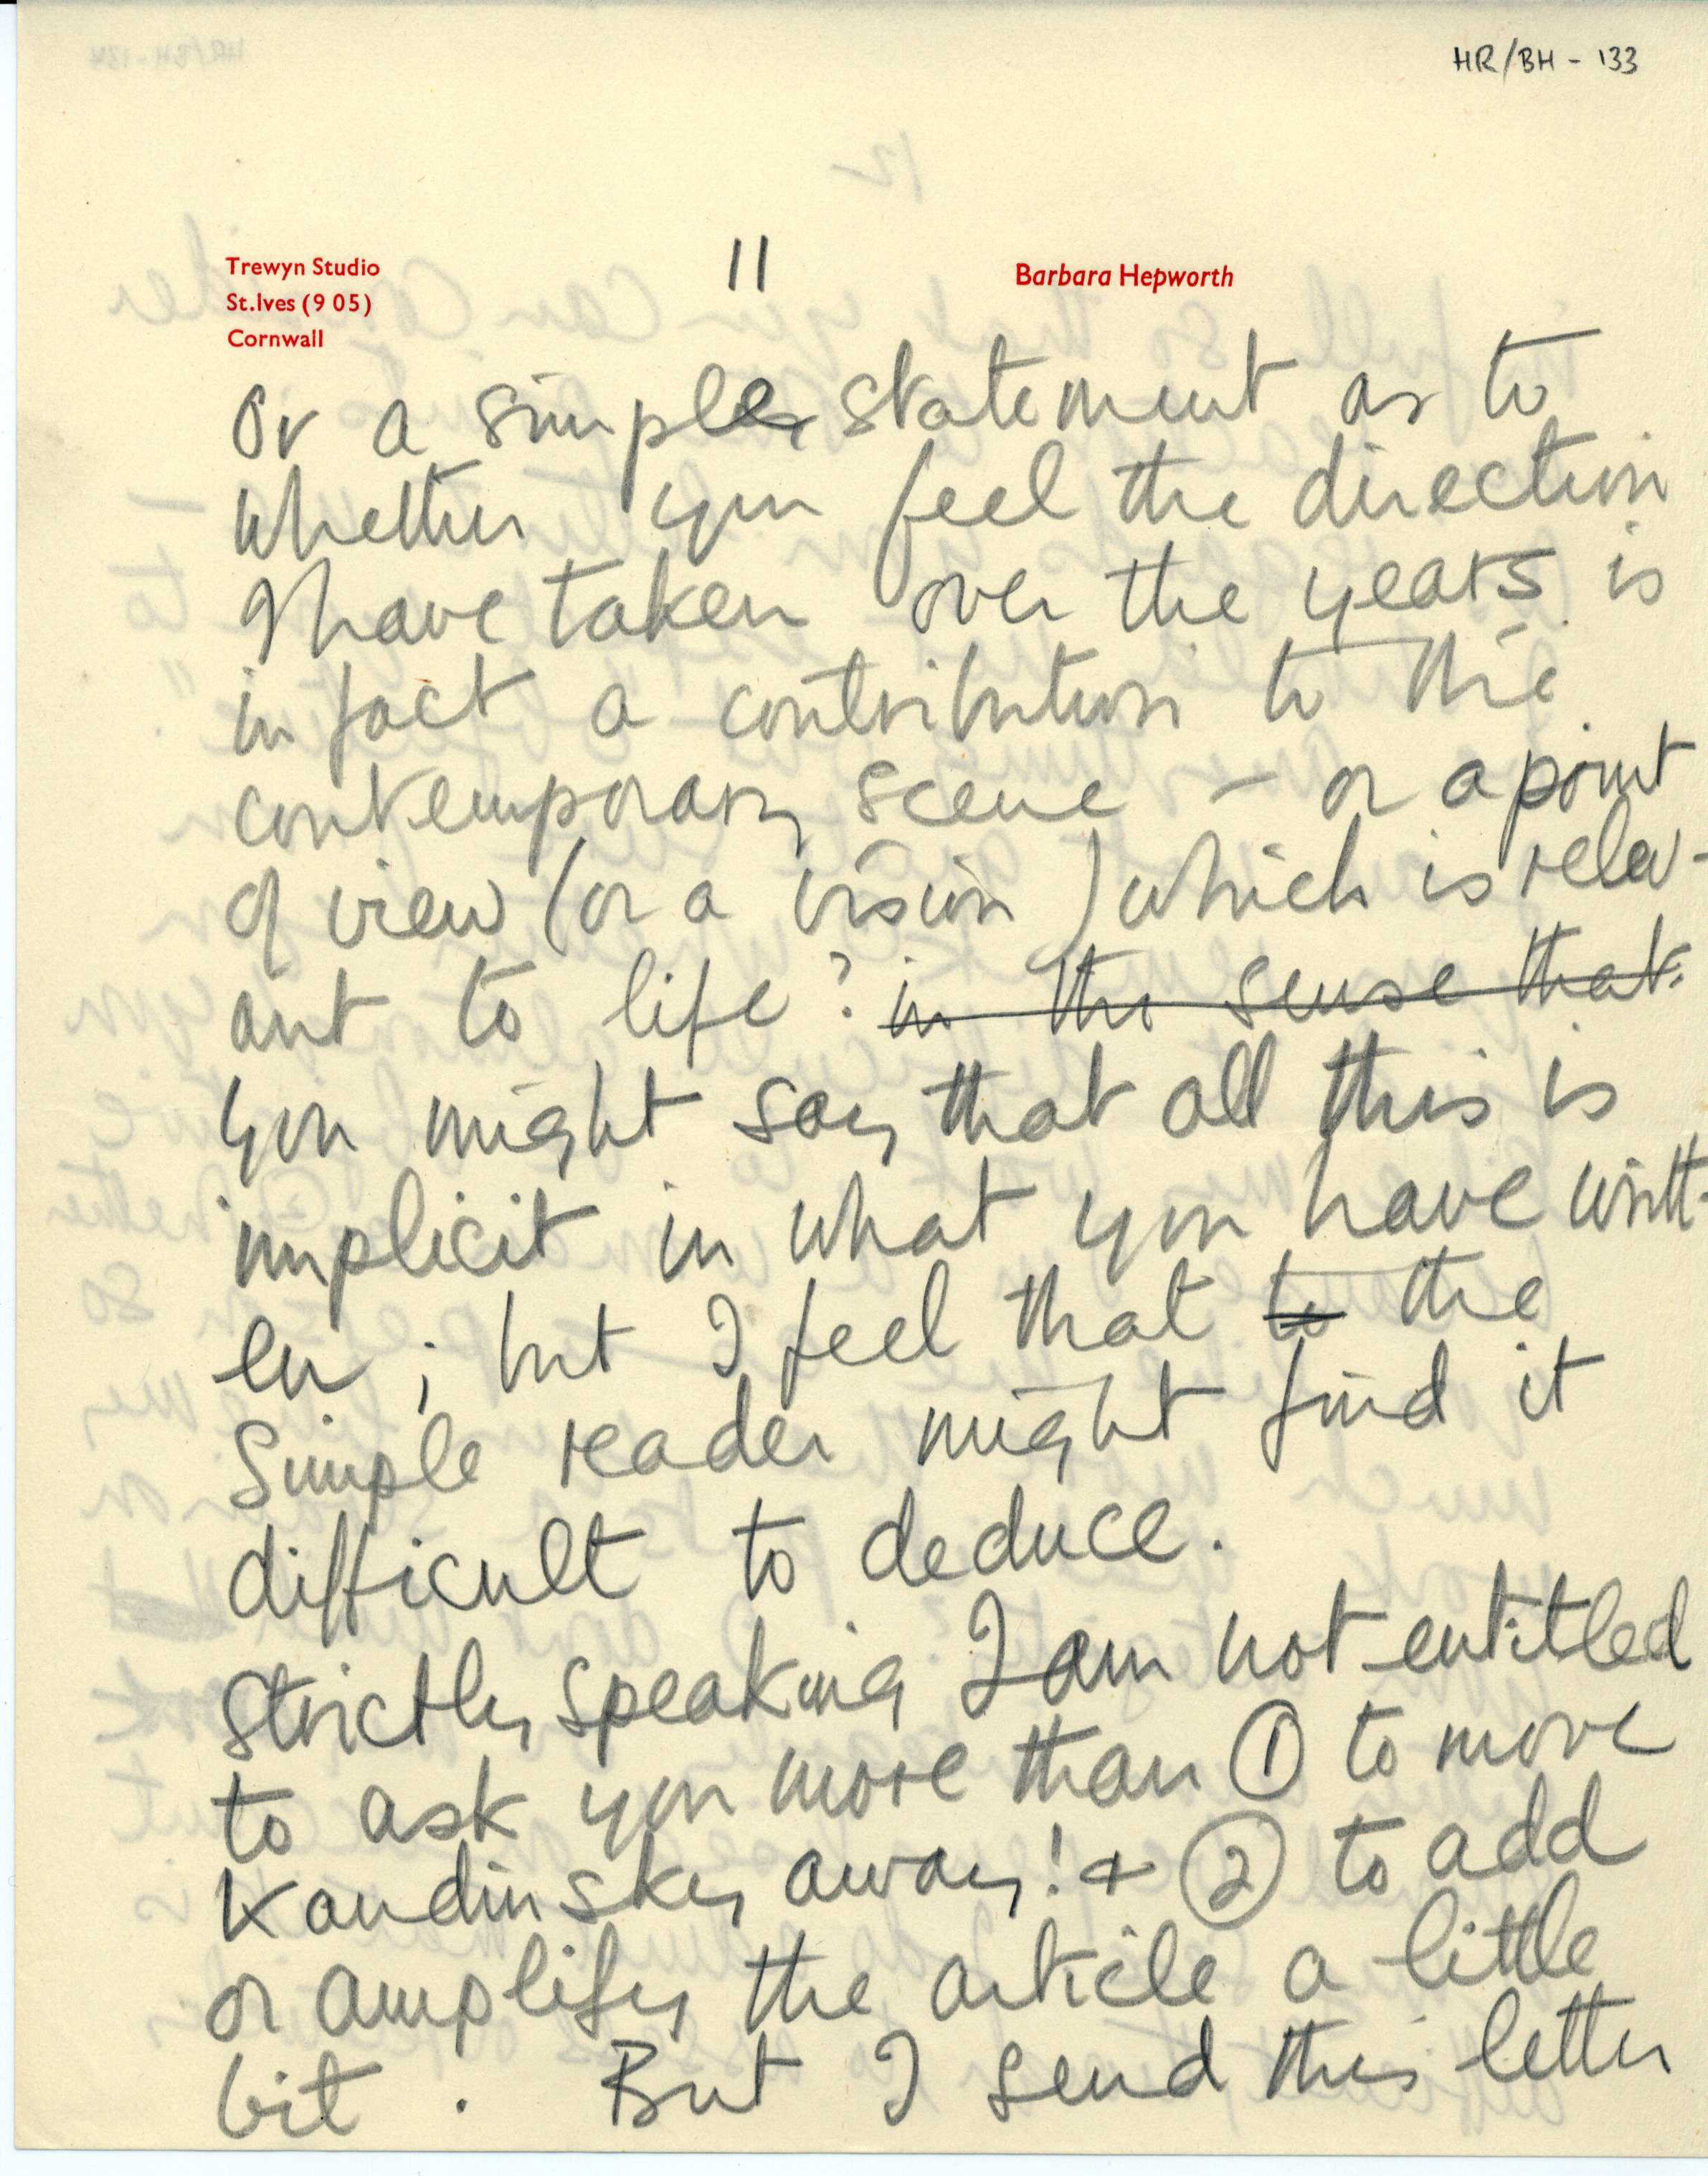 HR/BH - 133
11
Trewyn Studio
St.Ives (9 05)
Cornwall
Barbara Hepworth
or a simple statement as to
whether you feel the direction
I have taken over the years is
in fact a contribution to the
contemporary scene – or a point
of view (or a vision) which is relev-
ant to life? in the sense that
You might say that all this is
implicit in what you have writt-
en; but I feel that to the
simple reader might find it
difficult to deduce.
Strictly speaking I am not entitled
to ask you more than ① to move
Kandinsky away! + ② to add
or amplify the article a little
bit. But I send this letter